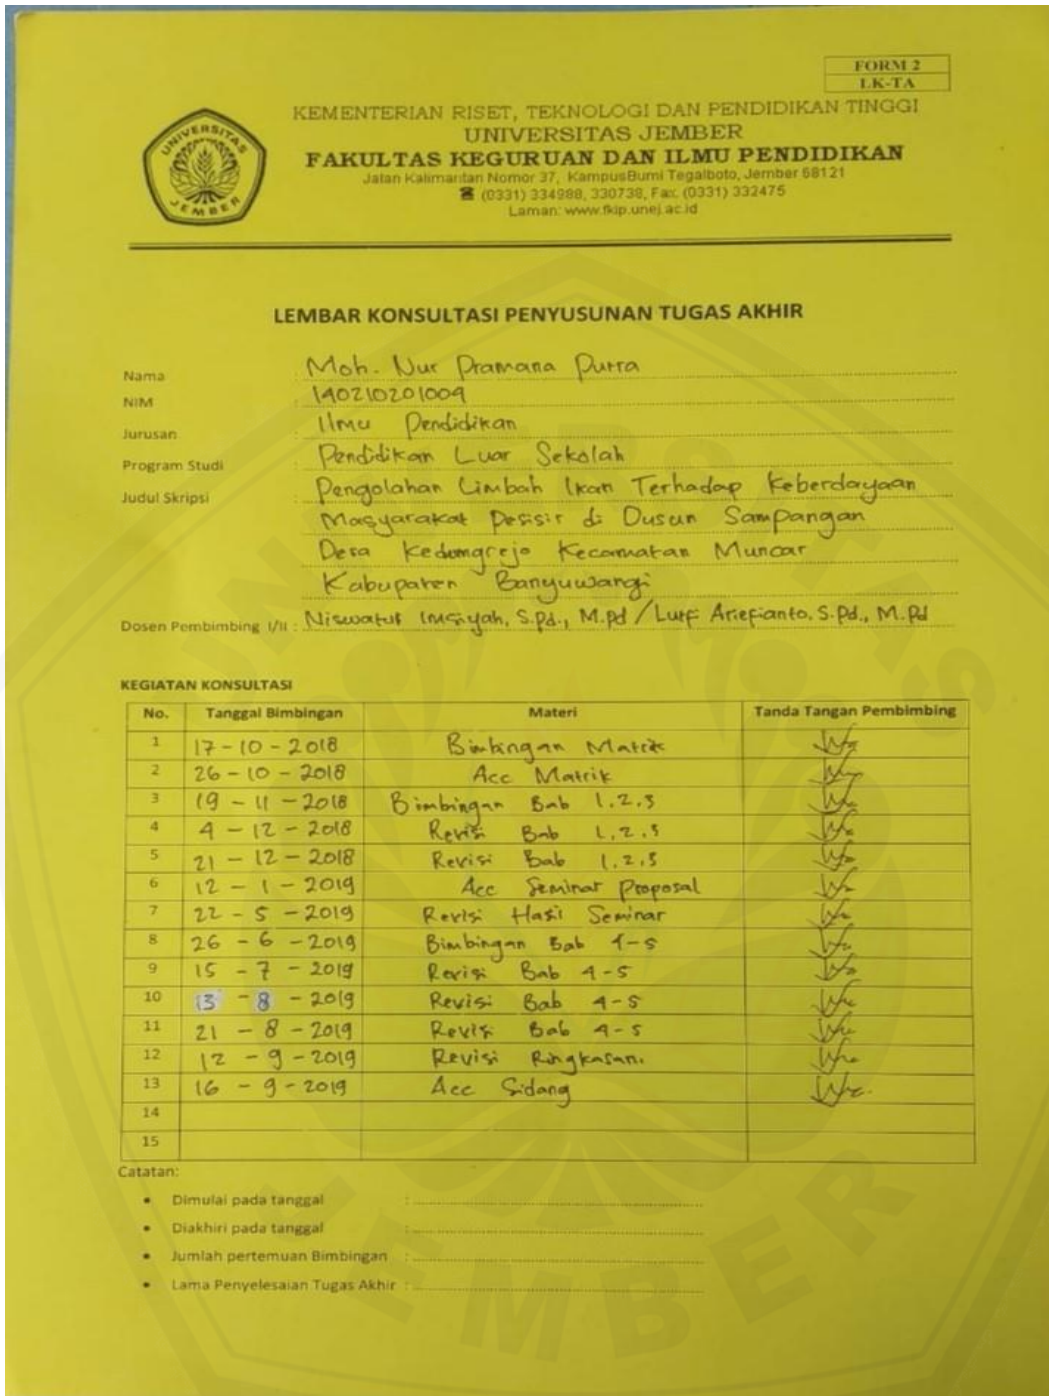 FORM 2
LK-TA
UNIVERSITAS
JEMBER
KEMENTERIAN RISET, TEKNOLOGI DAN PENDIDIKAN TINGGI
UNIVERSITAS JEMBER
FAKULTAS KEGURUAN DAN ILMU PENDIDIKAN
Jalan Kalimantan Nomor 37, KampusBumi Tegalboto, Jember 68121
☎ (0331) 334988, 330738, Fax: (0331) 332475
Laman: www.fkip.unej.ac.id
LEMBAR KONSULTASI PENYUSUNAN TUGAS AKHIR
Nama : Moh. Nur Pramana Putra
NIM : 140210201009
Jurusan : Ilmu Pendidikan
Program Studi : Pendidikan Luar Sekolah
Judul Skripsi : Pengolahan Limbah Ikan Terhadap Keberdayaan
Masyarakat Pesisir di Dusun Sampangan
Desa Kedungrejo Kecamatan Muncar
Kabupaten Banyuwangi
Dosen Pembimbing I/II : Niswatul Imsiyah, S.Pd., M.Pd / Lutfi Ariefianto, S.Pd., M.Pd
KEGIATAN KONSULTASI
No. Tanggal Bimbingan Materi Tanda Tangan Pembimbing
1 17-10-2018 Bimbingan Matrik
2 26-10-2018 Acc Matrik
3 19-11-2018 Bimbingan Bab 1,2,3
4 4-12-2018 Revisi Bab 1,2,3
5 21-12-2018 Revisi Bab 1,2,3
6 12-1-2019 Acc Seminar Proposal
7 22-5-2019 Revisi Hasil Seminar
8 26-6-2019 Bimbingan Bab 4-5
9 15-7-2019 Revisi Bab 4-5
10 13-8-2019 Revisi Bab 4-5
11 21-8-2019 Revisi Bab 4-5
12 12-9-2019 Revisi Ringkasan.
13 16-9-2019 Acc Sidang
14
15
Catatan:
• Dimulai pada tanggal :
• Diakhiri pada tanggal :
• Jumlah pertemuan Bimbingan :
• Lama Penyelesaian Tugas Akhir :
UNIVERSITAS JEMBER